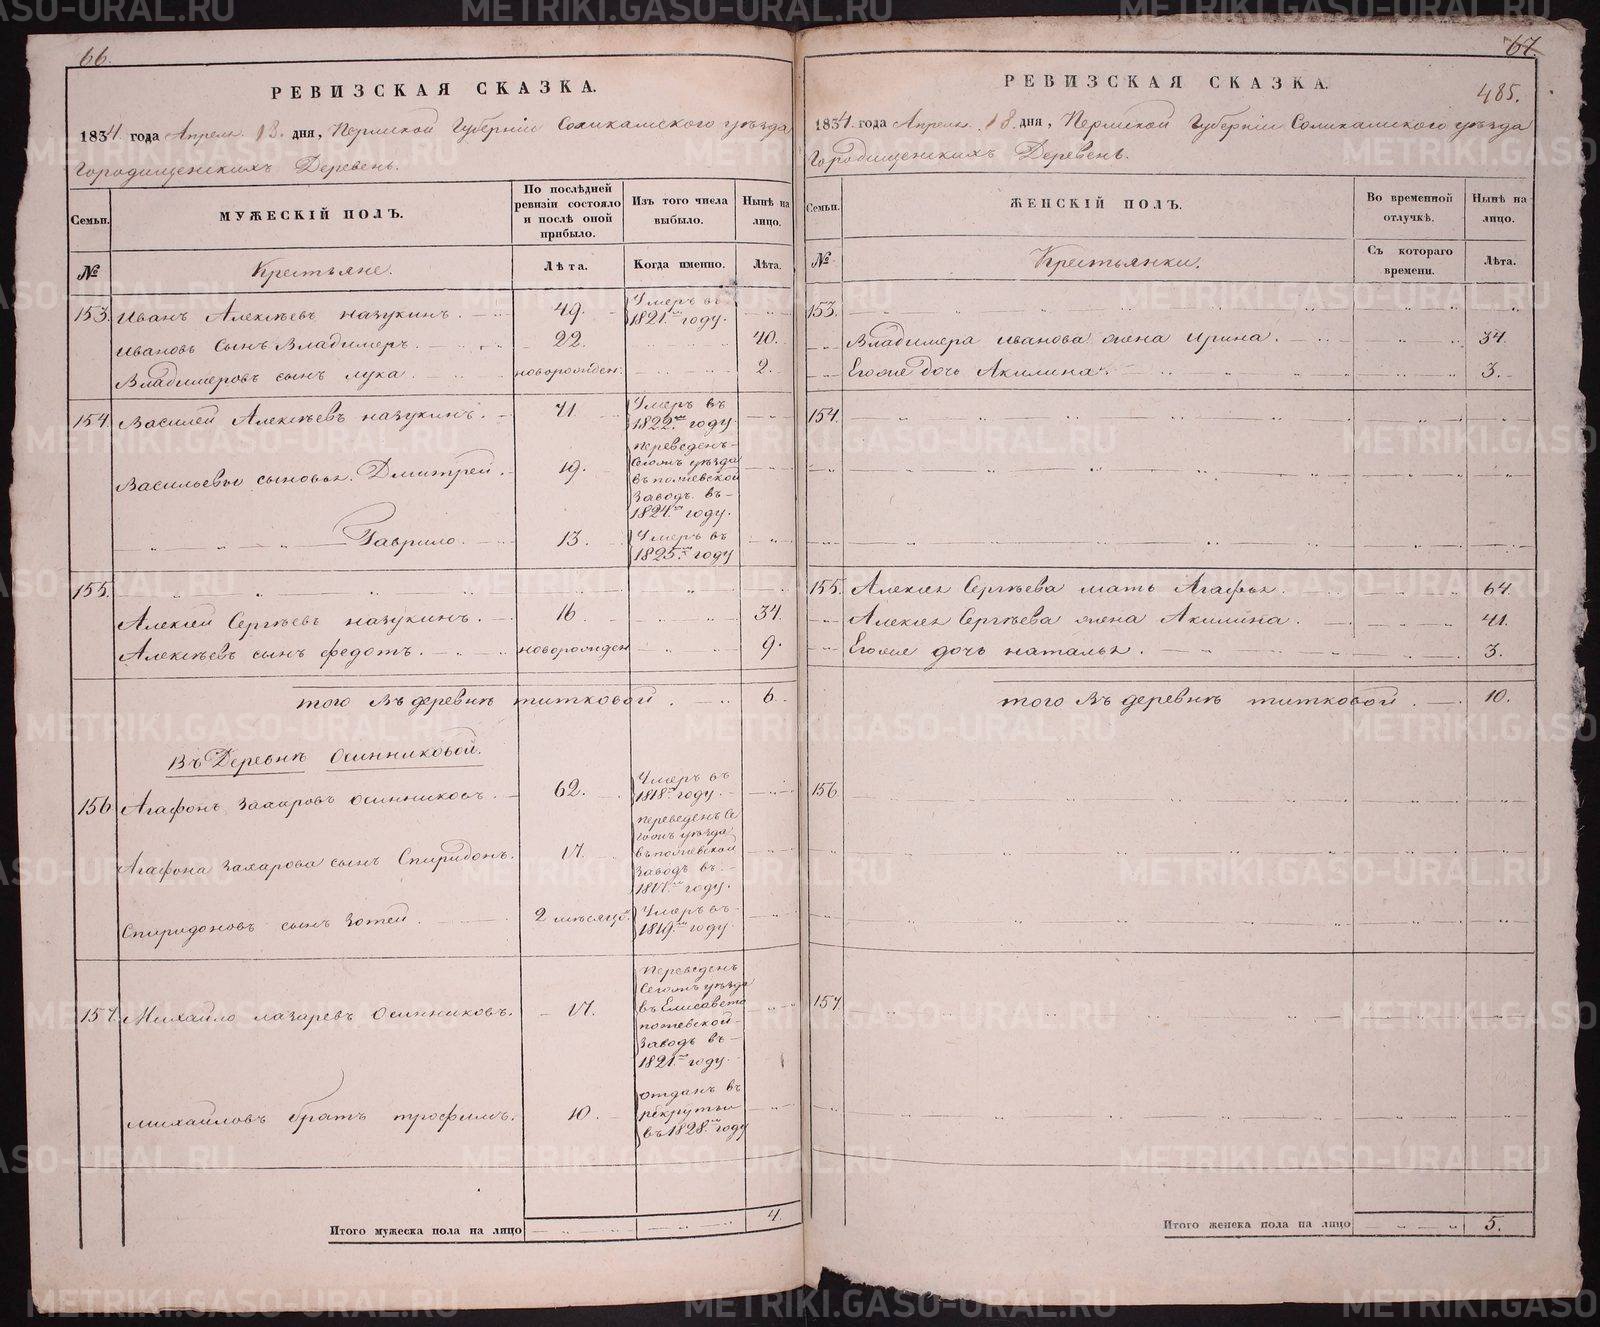 66.
РЕВИЗСКАЯ СКАЗКА.
1834 года Апреля 18 дня, Пермской Губернии Соликамского уѣзда
Городищенскихъ Деревень.
Семьи.
МУЖЕСКІЙ ПОЛЪ.
По послѣдней ревизіи состояло и послѣ оной прибыло.
Изъ того числа выбыло.
Нынѣ на лицо.
№
Крестьяне.
Лѣта.
Когда именно.
Лѣта.
153. Иванъ Алексѣевъ назукинъ. 49. Умеръ въ 1821.мъ году.
Ивановъ сынъ Владимеръ. 22. 40.
Владимеровъ сынъ лука. новорожден. 2.
154. Василей Алексѣевъ назукинъ. 41. Умеръ въ 1822.мъ году
Васильевы сыновья. Дмитрей. 19. переведенъ Сегожъ уѣзда въ пожевской Заводъ въ 1824.мъ году.
Гаврило. 13. Умеръ въ 1825.мъ году
155.
Алексѣй Сергѣевъ назукинъ. 16 34.
Алексѣевъ сынъ федотъ. новорожден 9.
того Въ деревнѣ титковой. 6.
Въ Деревнѣ Осинниковой.
156 Агафонъ Захаровъ Осинниковъ. 62. Умеръ въ 1818.мъ году.
Агафона Захарова сынъ Спиридонъ. 17. переведенъ Сегожъ уѣзда въ пожевской Заводъ въ 1817.мъ году.
Спиридоновъ сынъ Зотей. 2 мѣсяцо. Умеръ въ 1819.мъ году.
157. Михайло лазаревъ Осинниковъ. 17. Переведенъ Сегожъ уѣзда въ Елисавето пожевской Заводъ въ 1821.мъ году.
Михайловъ братъ трофимъ. 10. отданъ въ рекруты въ 1828.мъ году
Итого мужеска пола на лицо 4.
67.
485.
РЕВИЗСКАЯ СКАЗКА.
1834 года Апреля 18 дня, Пермской Губерніи Соликамского уѣзда
Городищенскихъ Деревень.
Семьи.
ЖЕНСКІЙ ПОЛЪ.
Во временной отлучкѣ.
Нынѣ на лицо.
№
Крестьянки.
Съ котораго времени.
Лѣта.
153.
Владимера иванова жена ирина. 34.
Егоже дочь Акилина. 3.
154.
155. Алексѣя Сергѣева мать Агафья. 64.
Алексѣя Сергѣева жена Акилина. 41.
Егоже дочь наталья. 3.
того Въ деревнѣ титковой. 10.
156.
157
Итого женска пола на лицо 5.
METRIKI.GASO-URAL.RU